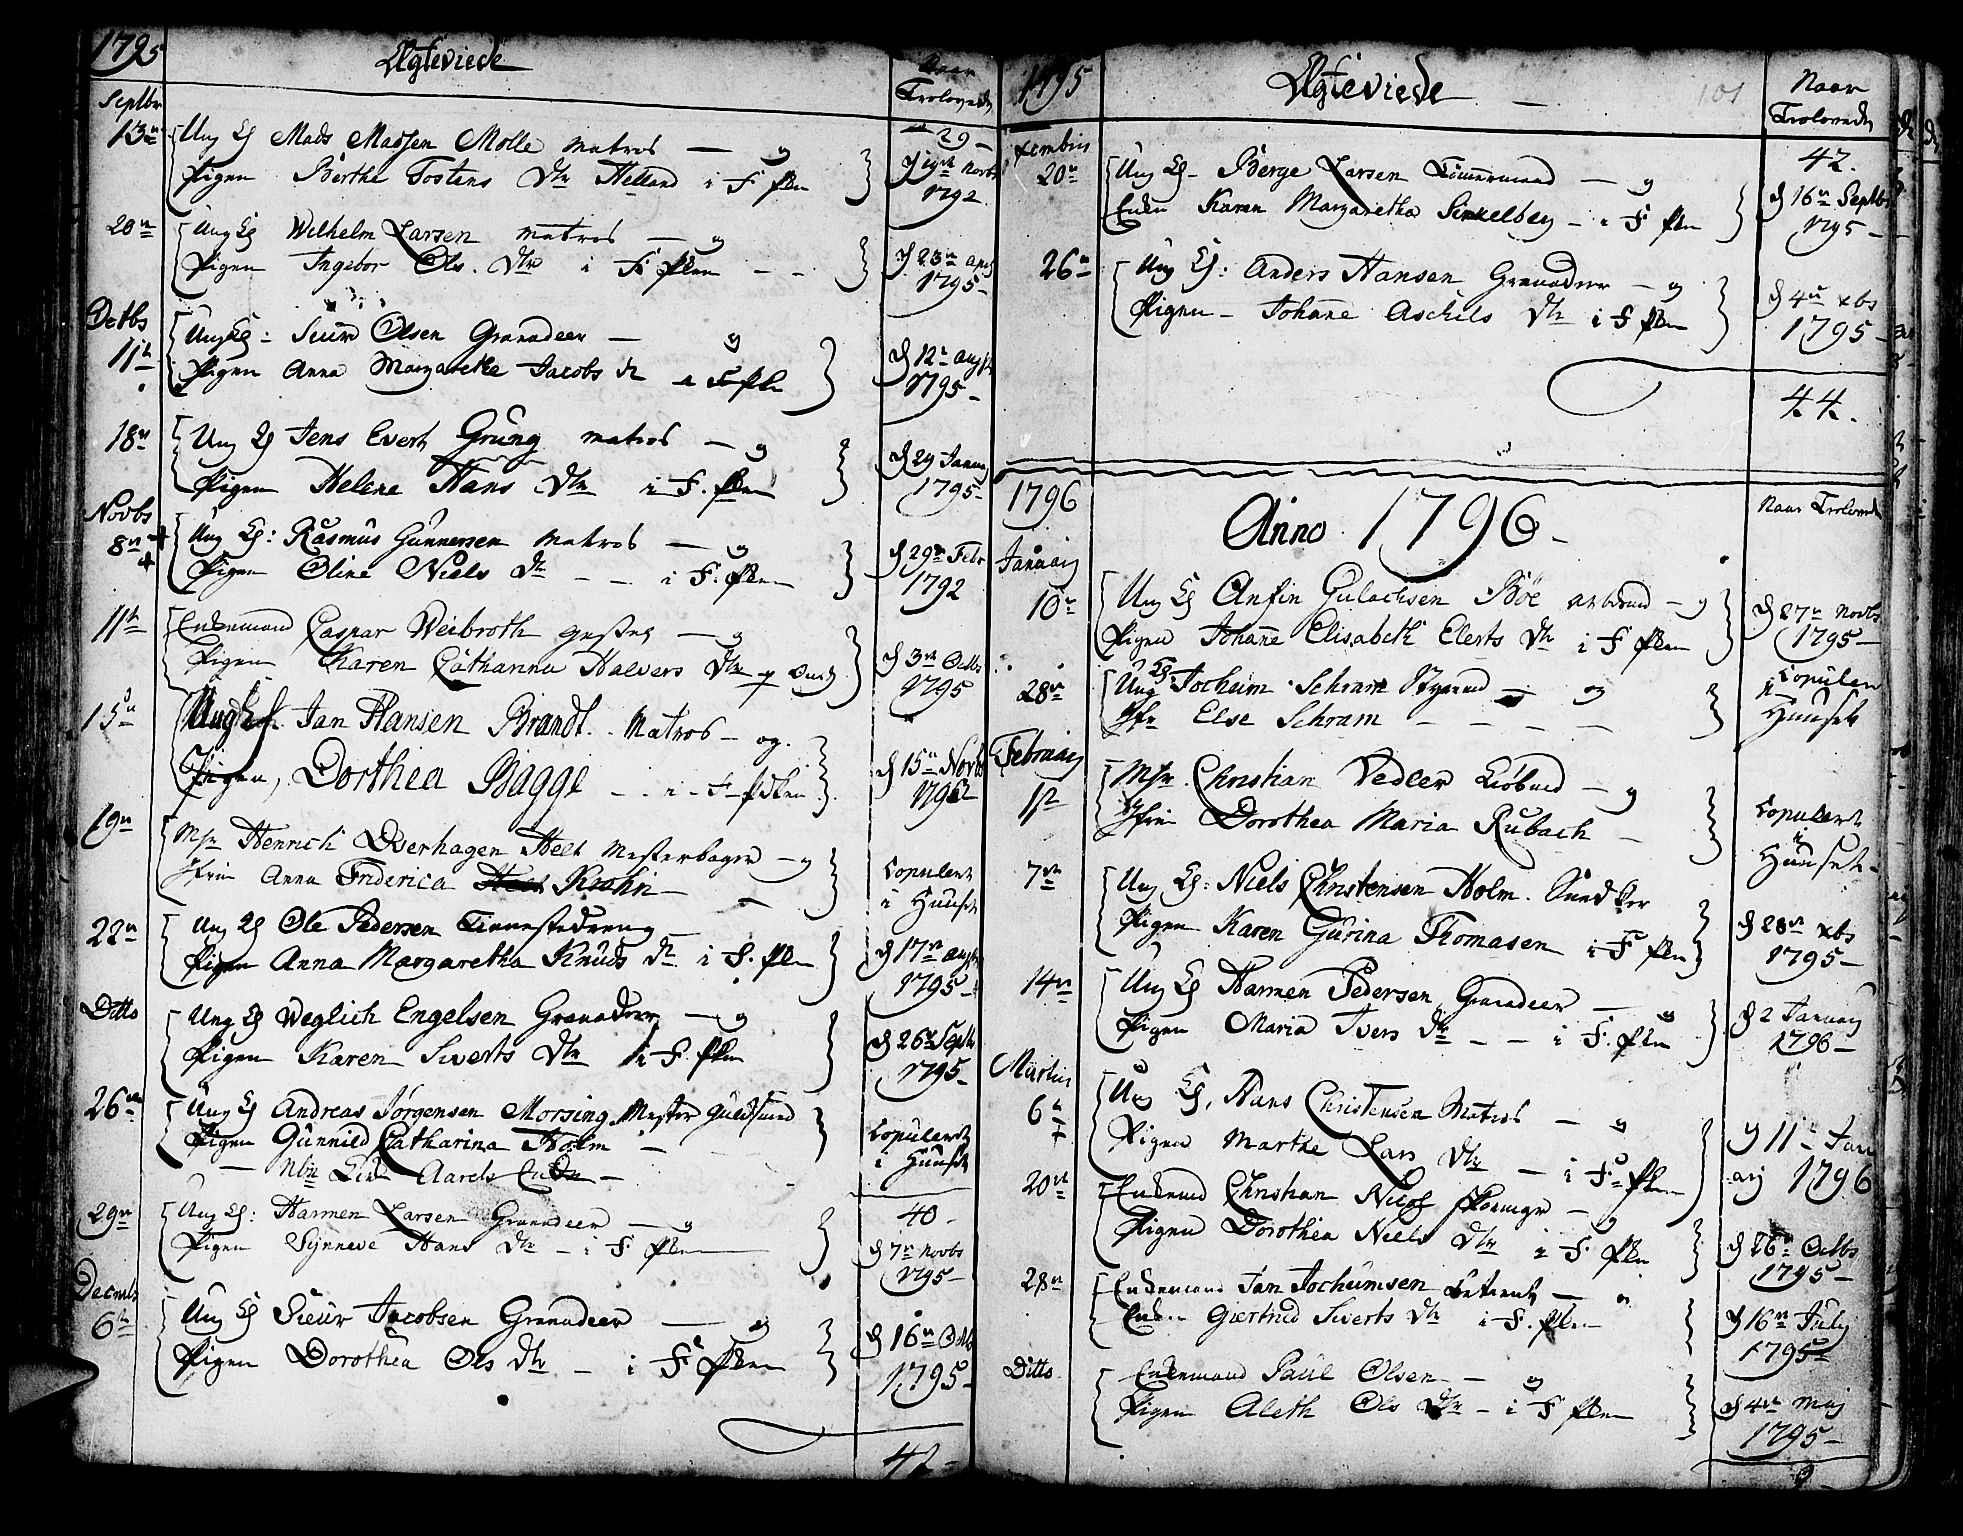 1795
Ægteviede
Naar
Trolovede
Septbr
29
13de Ung K Mads Madsen Molle matros — og
Pigen Berthe Tostens Dtr Helland i F Pln
1792
20de Ung K Wilhelm Larsen matros — og
Pigen Ingebor Ols Dtr i F. Plen
d 23de apr
1795
Octbs
11te Ung K: Siurd Olsen Granadeer — og
Pigen Anna Margarethe Jacobs dr i F Pln
d 12te augst
1795
18de Ung K Jens Evert Grung matros — og
Pigen Helene Hans Dtr i F. Plen
d 29 Januarj
1795
Novbs
8de Ung K: Rasmus Gunnersen matros — og
Pigen Oline Niels Dr — i F. Plen
d 29de Febr
1792
11te Enkemand Caspar Weibroth — og
Pigen Karen Catharina Halvers Dtr
d 3de Octbs
1795
15de Ung K. Jan Hansen Brandt. Matros — og.
Pigen, Dorthea Bagge — i F Pplen
d 15de Novbs
1795
19de Msr Henrich Overhagen Helt Mesterbager — og
Jfrue Anna Friderica Krohn —
Copuleret
i Huuset
22de Ung K Ole Pedersen — og
Pigen Anna Margaretha Knuds Dr i F. Plen
d 17de augst
1795
Ditto Ung K Weglich Engelsen Granadeer — og
Pigen Karen Siverts Dtr i F. Plen
d 26de Septb
1795
26de Ung K Andreas Jørgensen Morsing Mester Guldsmed
Pigen Gunnild Catharina Holm —
Copuleret
i Huuset
Aarels
40
29de Ung K: Harmen Larsen Granadeer — og
Pigen Synneve Hans Dtr — i F. Plen
d 7de Novbs
1795
Decembr
6te Ung K Sieur Jacobsen Granadeer — og
Pigen Dorothea Ols Dtr — i F Plen
d 16de Octbr
1795
42
1795
Ægteviede
101
Naar
Trolovede
xembris
42.
20de Ung K Børge Larsen Timmermand — og
Enken Karen Margaretha Sinkelberg — i F Plen
d 16de Septbr
1795
26de Ung K: Anders Hansen Granadeer — og
Pigen — Johane Aschils Dtr i F Plen
d 4de xbs
1795
44.
1796
Anno 1796
Naar Trolovede
Januarj
10de Ung K Anfin Gulachsen Bøe — og
Pigen Johane Elisabeth Elerts Dtr i F Plen
d 27de Novbs
1795
28de Ung K Jochum Schram Styrmd — og
Jfr Else Schram —
Copuleret
i
Huuset
Februarj
1ste Msr Christian Vedler Kiøbmd — og
Jfrue Dorothea Maria Rubach —
Copuleret
i
Huuset
7de Ung K: Niels Christensen Holm.
Pigen Karen Gurina Thomasen i F Plen
d 28de xbs
1795
14de Ung K Harmen Pedersen Granadeer — og
Pigen Maria Ivers Dtr — i F. Plen
d 2 Januarj
1796
Martius
6te Ung K, Hans Christensen Matros — og
Pigen Marthe Lars Dtr — i F. Plen
d 11te Janu
arj 1796
20de Enkemd Christian Nicol — og
Pigen Dorothea Niels Dtr i F. Plen
d 26de Octbs
1795
28de Enkemand Jan Jochumsen — og
Enken Giertrud Siverts Dtr i F. Plen
d 16de July
1795
Ditto Enkemand Paul Olsen — og
Pigen Aleth Ols Dtr — i F Plen
d 4de Maj
1795
9